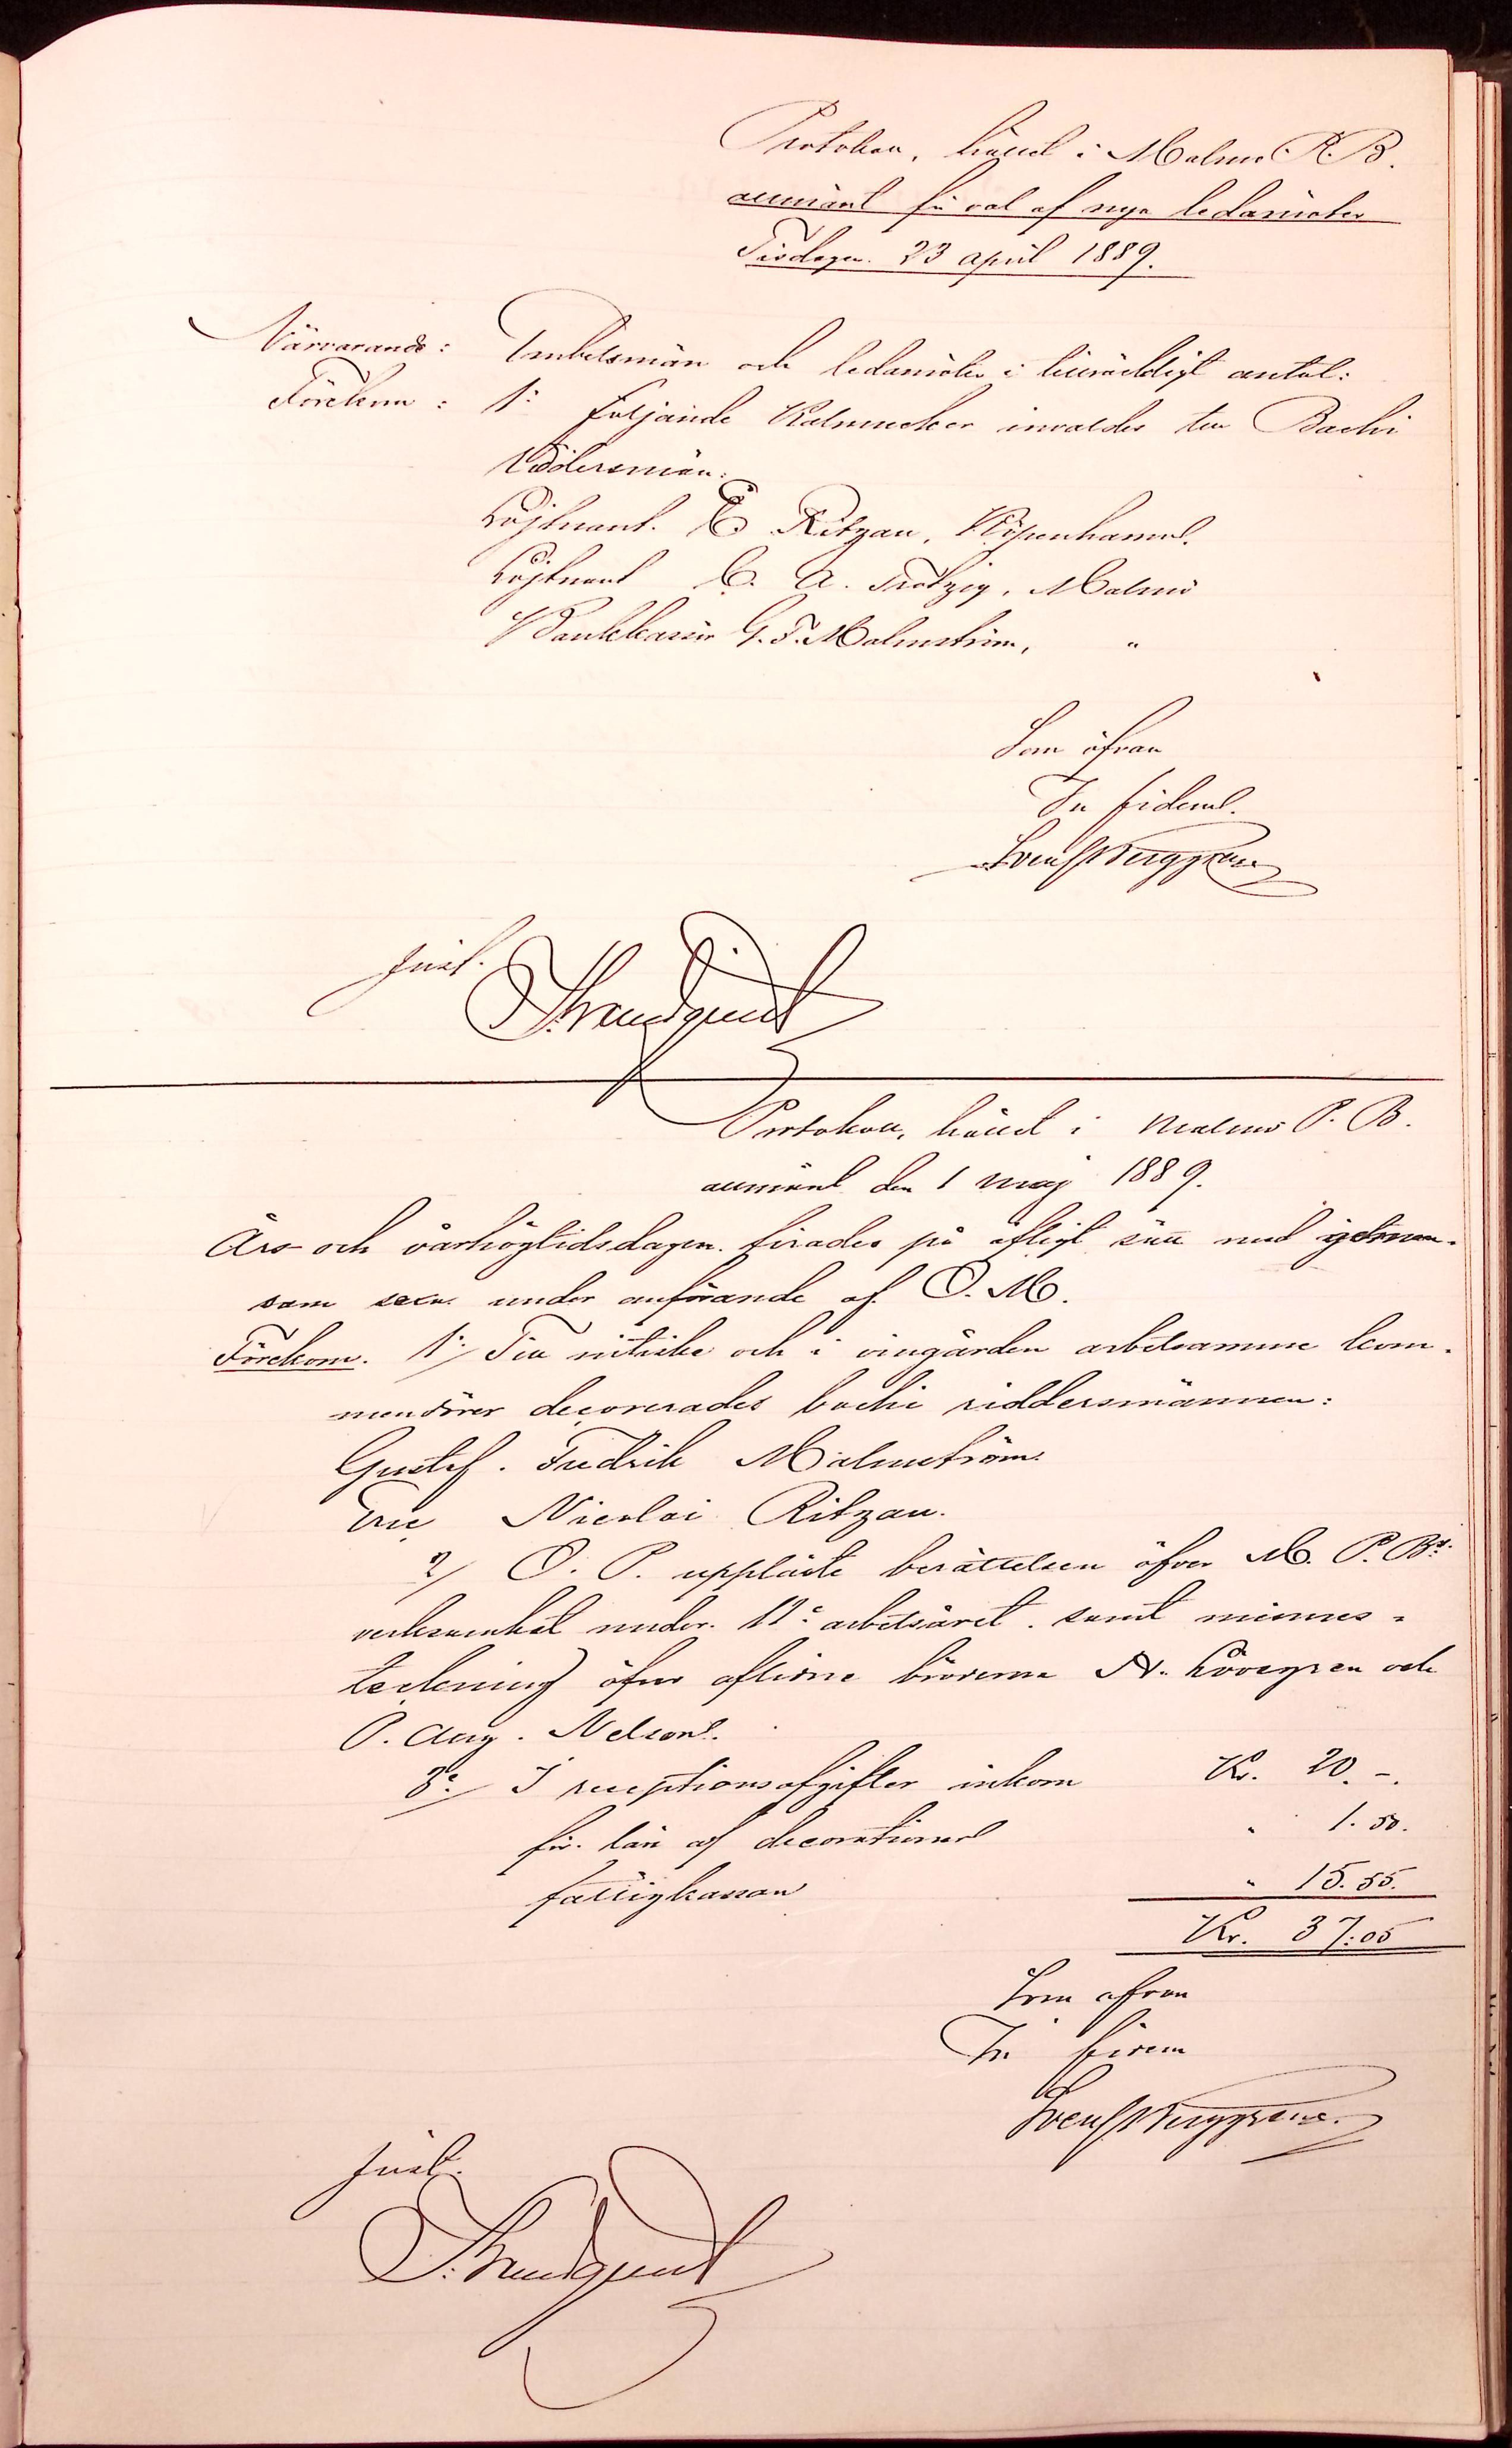 Protokoll, hållet i Malmö P. B.
allmänt för val af nya ledamöter
Tisdagen 23 april 1889.
Närvarande: Embetsmän och ledamöter i tillräckligt antal:
Förekom: 1: följande Kalmucker invaldes till Bachi
Riddersmän:
Löjtnant E Ritzau, Köpenhamn.
Löjtnant C. A. Trotzig, Malmö
Bankkassör G. F. Malmström, "
Som ofvan
In fidem.
Sven Berggren
Just.
Strandquist
Protokoll, hållet i Malmö P. B.
allmänt den 1 maj 1889.
Års- och vårhögtidsdagen firades på öfligt sätt med gemen-
sam sexa under anförande af O. M.
Förekom. 1:/ Till nitiske och i vingården arbetsamme kom-
mendörer decorerades bachi riddersmännen:
Gustaf Fredrik Malmström
Eric Nicolai Ritzau.
2/ O. P. uppläste berättelsen öfver M. P. Bs:
verksamhet under 11e arbetsåret samt minnes-
teckning öfver aflidne bröderna N. Lövegren och
P. Aug. Nelson.
3:/ I receptionsafgifter inkom Kr. 20.-.
för lån af decorationer " 1.50.
fattigkassan " 15.55.
Kr. 37:05
Som ofvan
In fidem
Sven Berggren
Just.
Strandquist